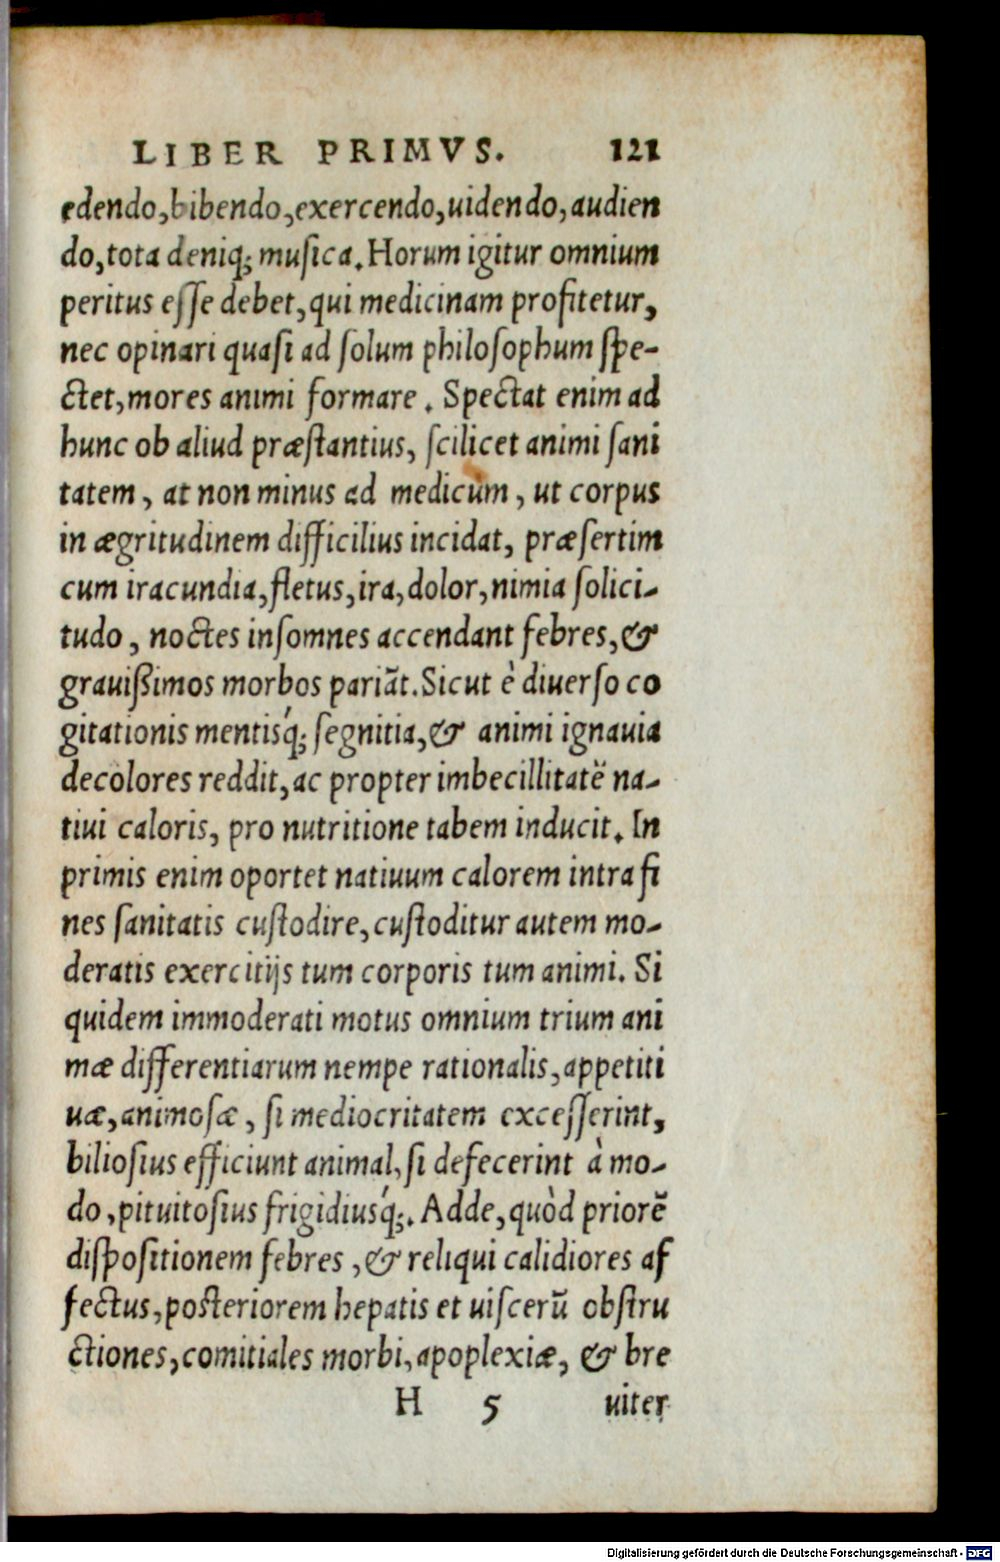 LIBER PRIMVS. 121
edendo,bibendo,exercendo,uidendo,audien
do,tota deniq; muſica.Horum igitur omnium
peritus eſſe debet,qui medicinam profitetur,
nec opinari quaſi ad ſolum philoſophum ſpe-
ctet,mores animi formare . Spectat enim ad
hunc ob aliud præſtantius, ſcilicet animi ſani
tatem , at non minus ad medicum , ut corpus
in ægritudinem difficilius incidat, præſertim
cum iracundia,fletus,ira,dolor,nimia ſolici-
tudo , noctes inſomnes accendant febres,&
grauißimos morbos pariãt.Sicut è diuerſo co
gitationis mentisq́; ſegnitia,& animi ignauia
decolores reddit,ac propter imbecillitatẽ na-
tiui caloris, pro nutritione tabem inducit. In
primis enim oportet natiuum calorem intra fi
nes ſanitatis cuſtodire,cuſtoditur autem mo-
deratis exercitijs tum corporis tum animi. Si
quidem immoderati motus omnium trium ani
mæ differentiarum nempe rationalis,appetiti
uæ,animoſæ , ſi mediocritatem exceſſerint,
bilioſius efficiunt animal,ſi defecerint à mo-
do ,pituitoſius frigidiusq́;. Adde,quòd priorẽ
diſpoſitionem febres ,& reliqui calidiores af
fectus,poſteriorem hepatis et uiſcerũ obſtru
ctiones,comitiales morbi,apoplexiæ, & bre
H 5 uiter
Digitalisierung gefördert durch die Deutsche Forschungsgemeinschaft - DFG